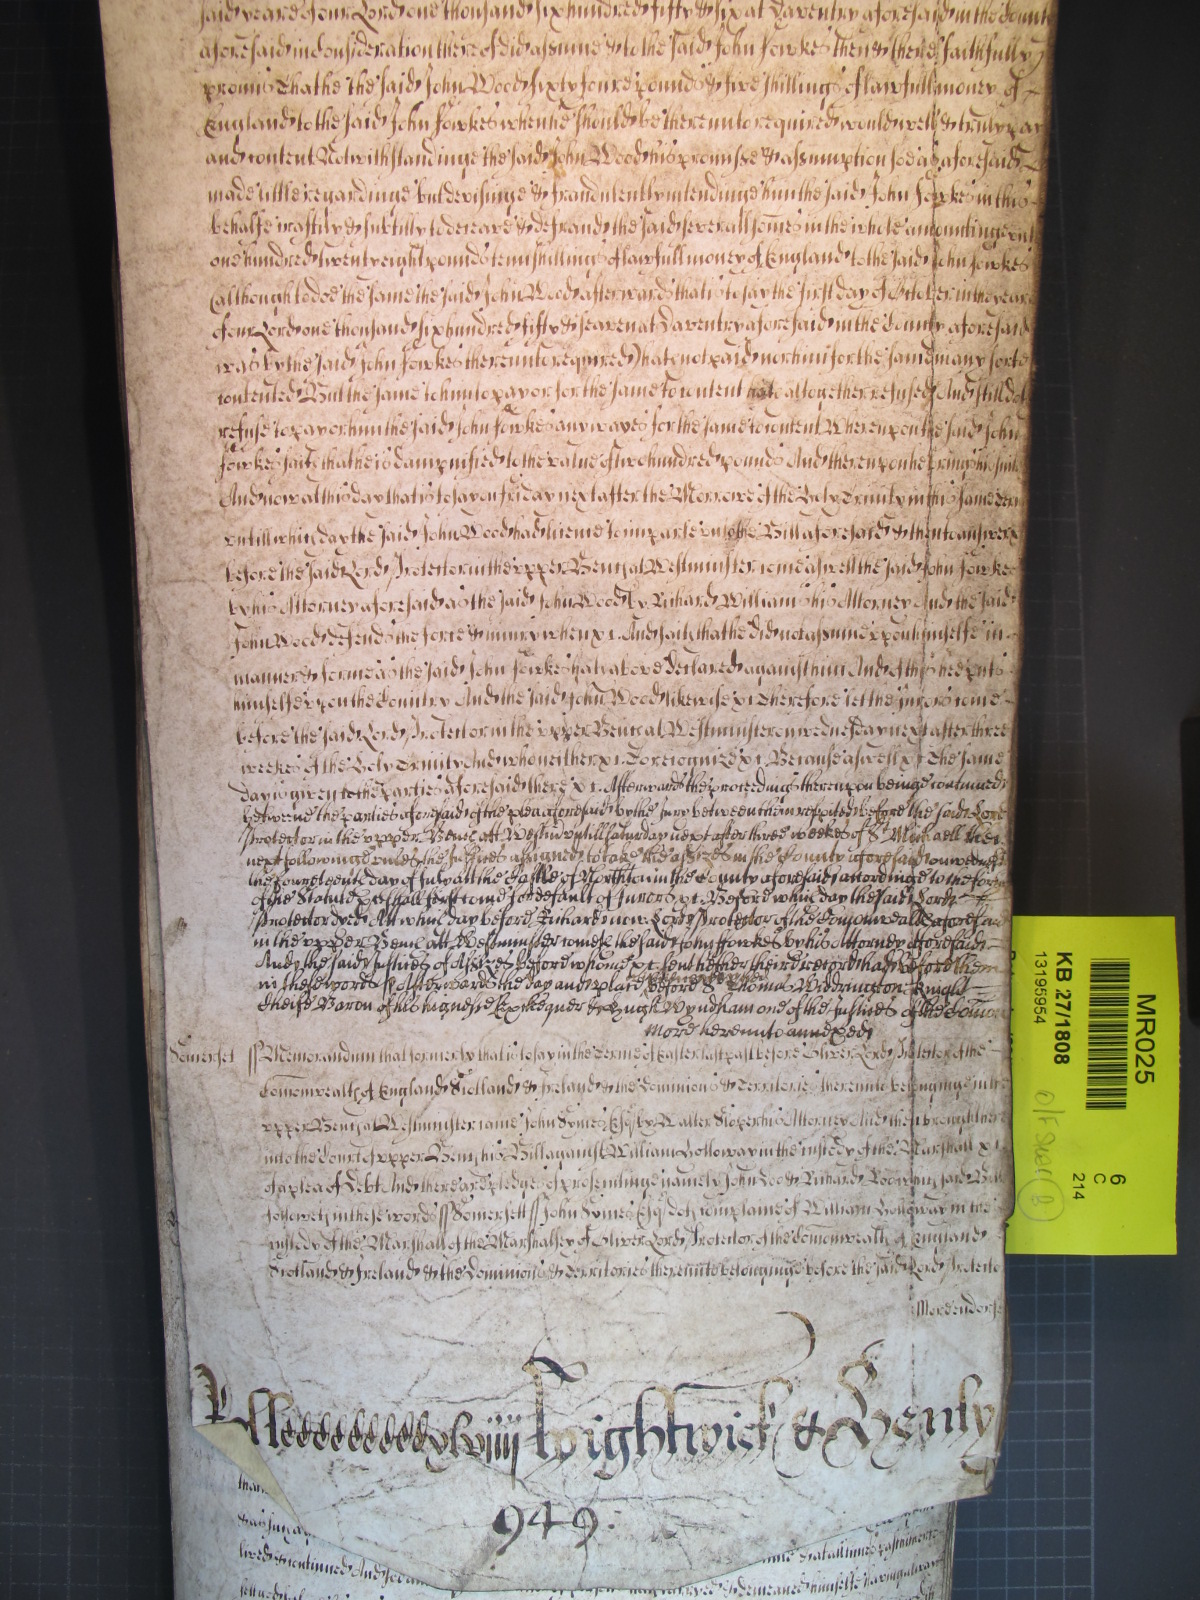 said yeare of our Lord one thousand six hundred fifty & six at Daventry aforesaid in the County
aforesaid in consideration thereof did assume & to the said John Fowkes then & there faithfully
promis That he the said John Wood sixty foure pounds & five shillings of lawfull money of
England to the said John Fowkes when he should be thereunto required would well & truly pay
and content Notwithstandinge the said John Wood his promisse & assumption soe as aforesaid
made little regardinge but devisinge & fraudulently intendinge him the said John Fowkes in this
behalfe craftily & subtilly to deceave & defraud the said severall somes in the whole amountinge unto
one hundred twenty eight pounds tenn shillings of lawfull money of England to the said John Fowkes
(although to doe the same the said John Wood afterwards that is to say the first day of October in the yeare
of our Lord one thousand six hundred fifty & seaven at Daventry aforesaid in the County aforesaid
was by the said John Fowkes thereunto required) hath not paid nor him for the same in any sorte
contented But the same to him to pay or for the same to content hath altogether refused And still doth
refuse to pay or him the said John Fowkes any wayes for the same to content Whereupon the said John
Fowkes saith that he is dampnified to the value of two hundred pounds And thereupon he brings his suite
And now at this day that is to say on Friday next after the Morrowe of the Holy Trinity in this same terme
untill which day the said John Wood had licence to imparle unto the Bill aforesaid & then to answere
before the said Lord Protector in the upper Bench at Westminster come aswell the said John Fowkes
by his Attorney aforesaid as the said John Wood by Richard Williams his Attorney And the said
John Wood defends the force & iniury when xc. And saith that he did not assume upon himselfe in
manner & forme as the said John Fowkes hath above declared against him And of this hee puts
himselfe upon the Country And the said John Wood likewise xc Therefore let the Jurors come
before the said Lord Protector in the upper Bench at Westminster on wednesday next after three
weekes of the Holy Trinity And who neither xc To recognize xc. Because aswell xc The same
day is given to the parties aforesaid there xc. Afterwards the proceedings thereupon beinge continued
betweene the parties aforesaid of the plea aforesaid by the Jury betweene them respited before the said Lord
Protector in the upper Bench att Westm untill saturday next after three weekes of St Michaell then
next followinge unles the Justices assigned to take the assizes in the County aforesaid on wednesd
the fourteenth day of July att the Castle of Northton in the County aforesaid accordinge to the forme
of the Statute xc shall first come for default of Jurors xc. Before which day the said Lord
Protector dyed Att which day before Richard now Lord Protector of the Comonwealth aforesaid
in the upper Bench att Westminster cometh the said John Fowkes by his Attorney aforesaid
And the said Justices of Assizes before whome xc sent hether their record had before them
in these words ss Afterwards the day and place before St Thomas Widdrington Knight
Cheife Baron of his highnes Exchequer & Hugh Wyndham one of the Justices of the Comon
More hereunto annexed
Somerset ss Memorandum that formerly that is to say in the terme of Easter last past before Oliver Lord Protector of the
Comonwealth of England Scotland & Ireland & the Dominions & Territories thereunto belonginge in the
upper Bench at Westminster came John Symes Esq by Walter his Attorney And then brought here
into the Court of upper Bench his Bill against William Holloway in the custody of the Marshall xc
of a plea of Debt And there are pledges of prosecutinge namely John Doe & Richard Roo which said Bill
followeth in these words ss Somersett ss John Symes Esq doth complaine of William Holloway in the
custody of the Marshall of the Marshalsey of Oliver Lord Protector of the Comonwealth of England
Scotland & Ireland & the Dominions & Territories thereunto belonginge before the said Lord Protecto
More endorse
Wightwick & Henly
949.
MR025
KB 27/1808
13195954
6
C
214